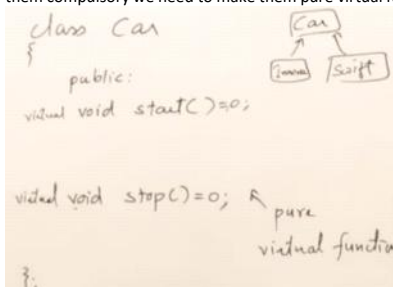 them compulsory we need to make them pure virtual
class Car
{
public:
virtual void start()=0;
virtual void stop()=0;
pure
virtual function
};
Car
Innova
Swift